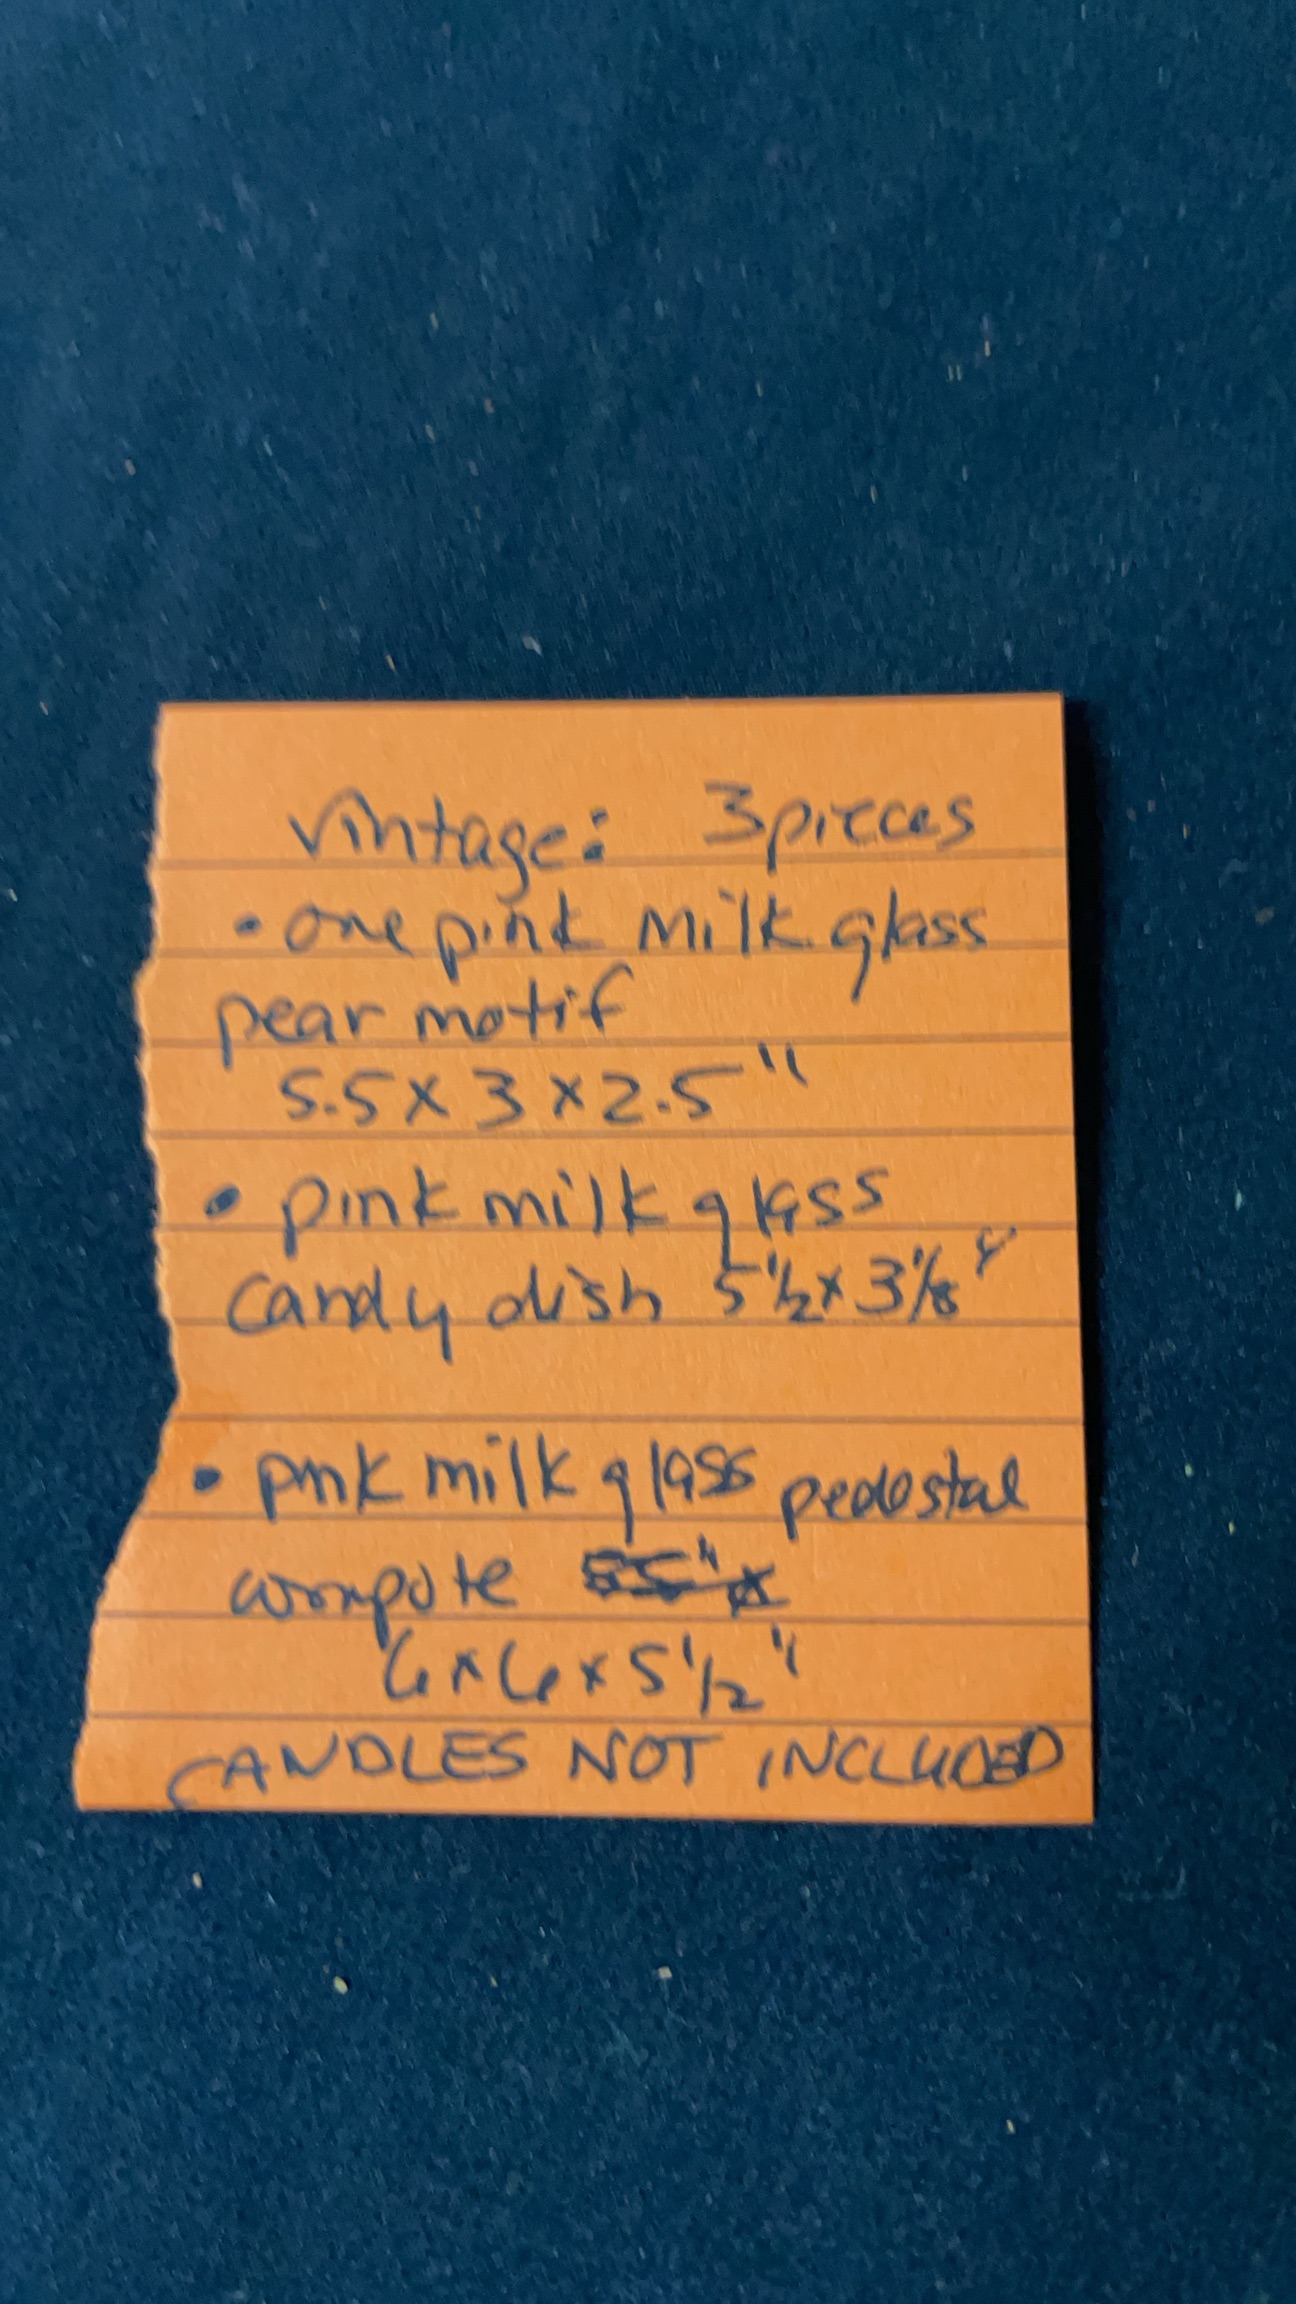 Vintage: 3 pieces
• one pink milk glass
pear motif
5.5 x 3 x 2.5"
• pink milk glass
candy dish 5 1/2 x 3 1/8"
• pink milk glass pedestal
compote
6 x 6 x 5 1/2"
CANDLES NOT INCLUDED